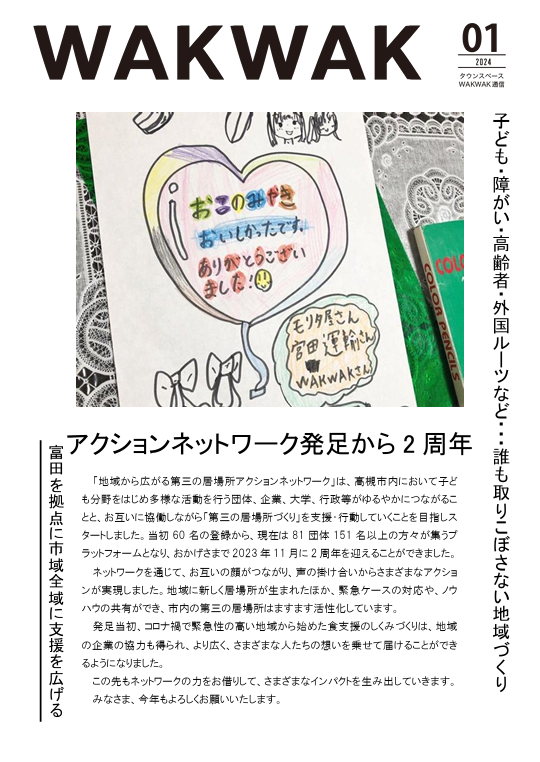 WAKWAK
01
2024
タウンスペース
WAKWAK通信
子ども・障がい・高齢者・外国ルーツなど・・・誰も取りこぼさない地域づくり
おこのみやき
おいしかったです。
ありがとうござい
ました!
モリタ屋さん
宮田運輸さん
WAKWAKさん
COLOR PENCILS
アクションネットワーク発足から2周年
富田を拠点に市域全域に支援を広げる
「地域から広がる第三の居場所アクションネットワーク」は、高槻市内において子ど
も分野をはじめ多様な活動を行う団体、企業、大学、行政等がゆるやかにつながるこ
とと、お互いに協働しながら「第三の居場所づくり」を支援・行動していくことを目指しス
タートしました。当初60名の登録から、現在は81団体151名以上の方々が集うプ
ラットフォームとなり、おかげさまで2023年11月に2周年を迎えることができました。
ネットワークを通じて、お互いの顔がつながり、声の掛け合いからさまざまなアクショ
ンが実現しました。地域に新しく居場所が生まれたほか、緊急ケースの対応や、ノウ
ハウの共有ができ、市内の第三の居場所はますます活性化しています。
発足当初、コロナ禍で緊急性の高い地域から始めた食支援のしくみづくりは、地域
の企業の協力も得られ、より広く、さまざまな人たちの想いを乗せて届けることができ
るようになりました。
この先もネットワークの力をお借りして、さまざまなインパクトを生み出していきます。
みなさま、今年もよろしくお願いいたします。